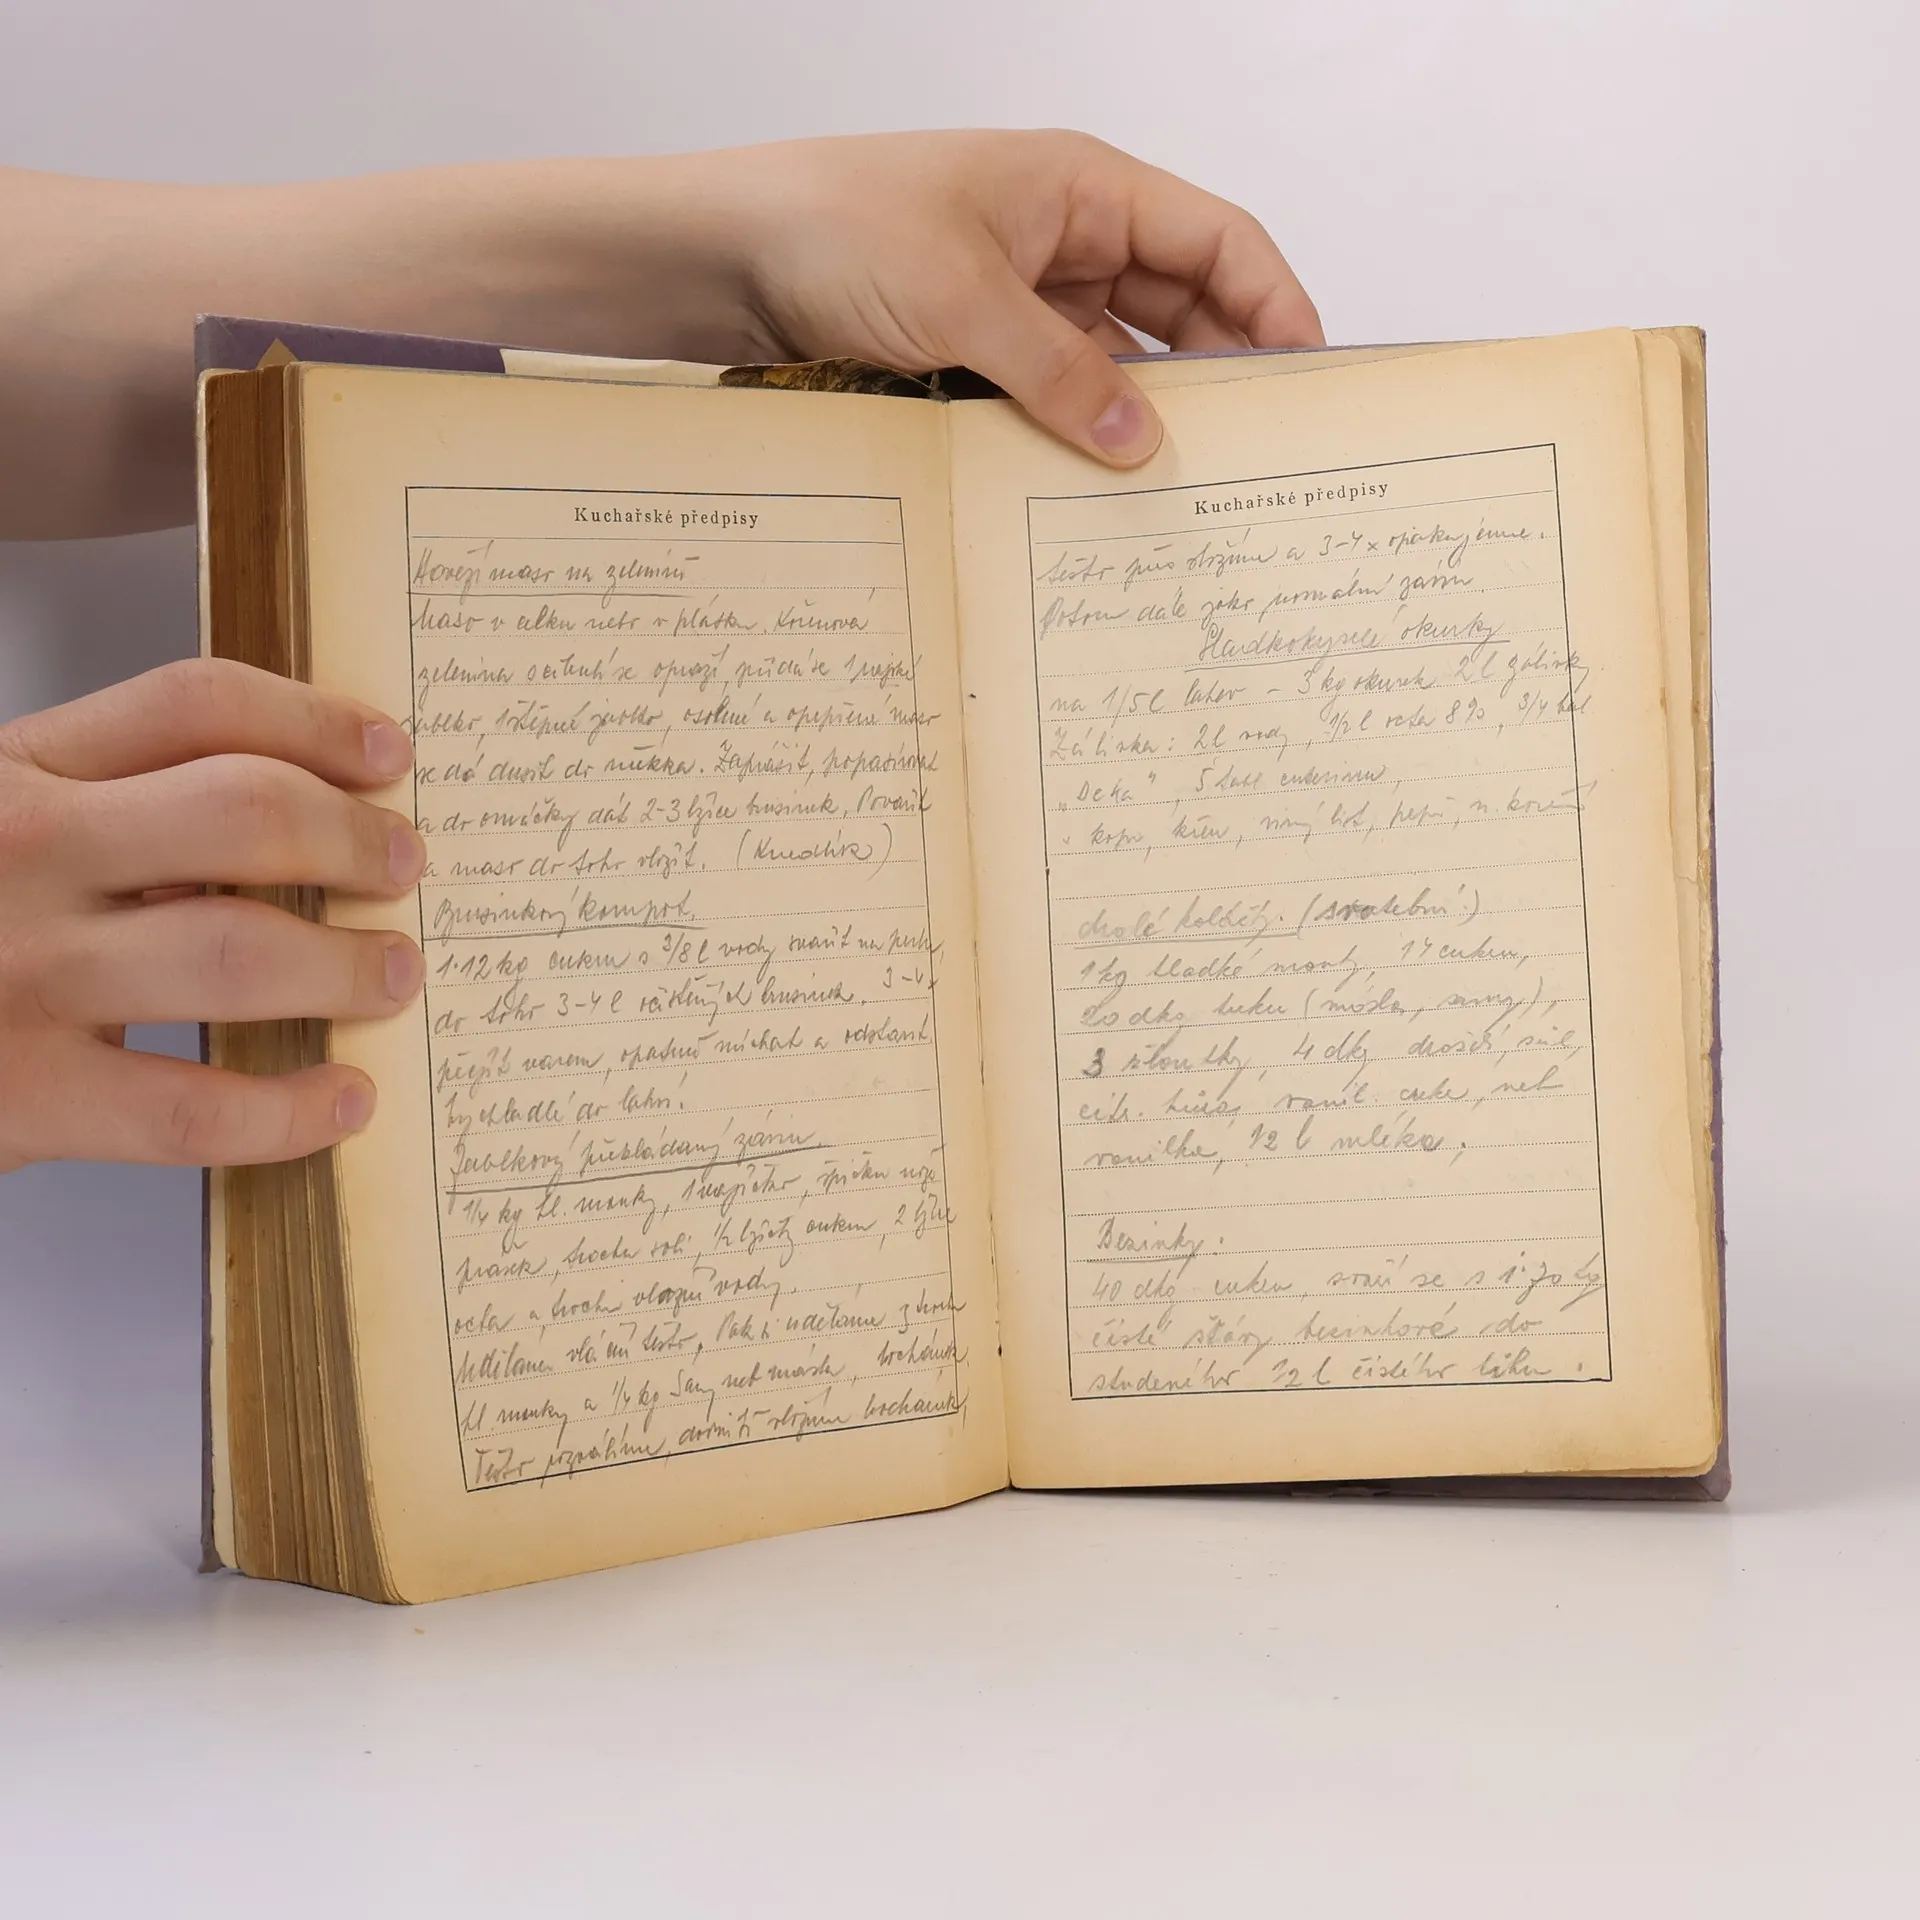 Kuchařské předpisy
Hovězí maso na zelenině
Maso v celku nebo v plátku. Kořenová
zelenina s cibulí se opraží, přidá se 1 rajské
jablko, 1 štěpné jablko, osolené a opepřené maso
se dá dusit do měkka. Zaprášit, popasírovat
a do omáčky dát 2-3 lžíce brusinek. Povařit
a maso do toho vložit. (Knedlík)
Brusinkový kompot.
1·12 kg cukru s 3/8 l vody svařit na
do toho 3-4 l očištěných brusinek. 3-4x
přejít varem, opatrně míchat a odstavit.
Vychladlé do lahví.
Jablkový překládaný závin.
1/4 kg hl. mouky, 1 vajíčko, špičku nože
prášek, trochu soli, 1/2 lžičky cukru, 2 lžíce
octa a trochu vlažné vody.
Uděláme vláčné těsto. Pak si uděláme z trochu
hl. mouky a 1/4 kg Sany neb másla, bochánek.
Těsto rozválíme, dovnitř vložíme bochánek,
Kuchařské předpisy
těsto přes složíme a 3-4 x opakujeme.
Potom dále jako normální závin.
Sladkokyselé okurky
na 1/5 l lahev - 3 kg okurek 2 l zálivky.
Zálivka: 2 l vody, 1/2 l octa 8%, 3/4 bal.
"Deka", 5 tabl cukerinu,
kopr, křen, list, pepř, n. koření
drobné koláčky. (svatební)
1 kg hladké mouky, 14 cukru,
20 dkg tuku (másla, sany),
3 žloutky, 4 dkg droždí, sůl,
citr. kůra, vanil. cukr, neb
vanilka, 1/2 l mléka.
Bezinky:
40 dkg cukru, svaří se s 1·70 kg
čisté šťávy bezinkové do
studeného 1/2 l čistého lihu.